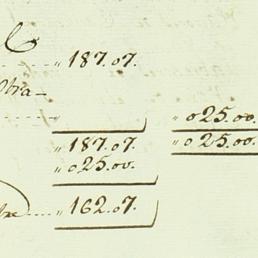 187.07.
025.00.
187.07. 025.00.
025.00.
162.07.